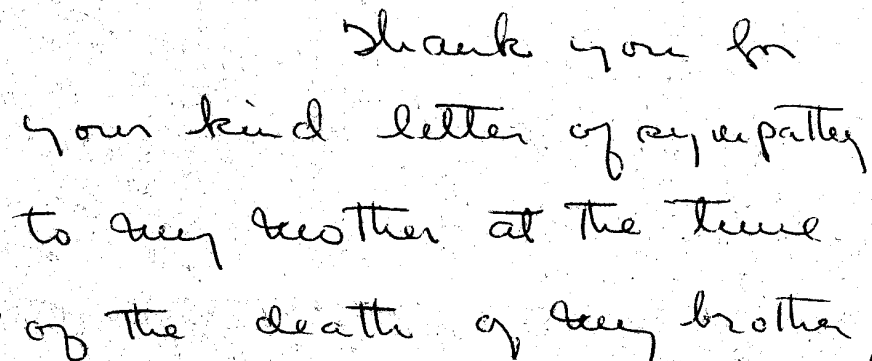 Thank you for
your kind letter of sympathy
to my mother at the time
of the death of my brother